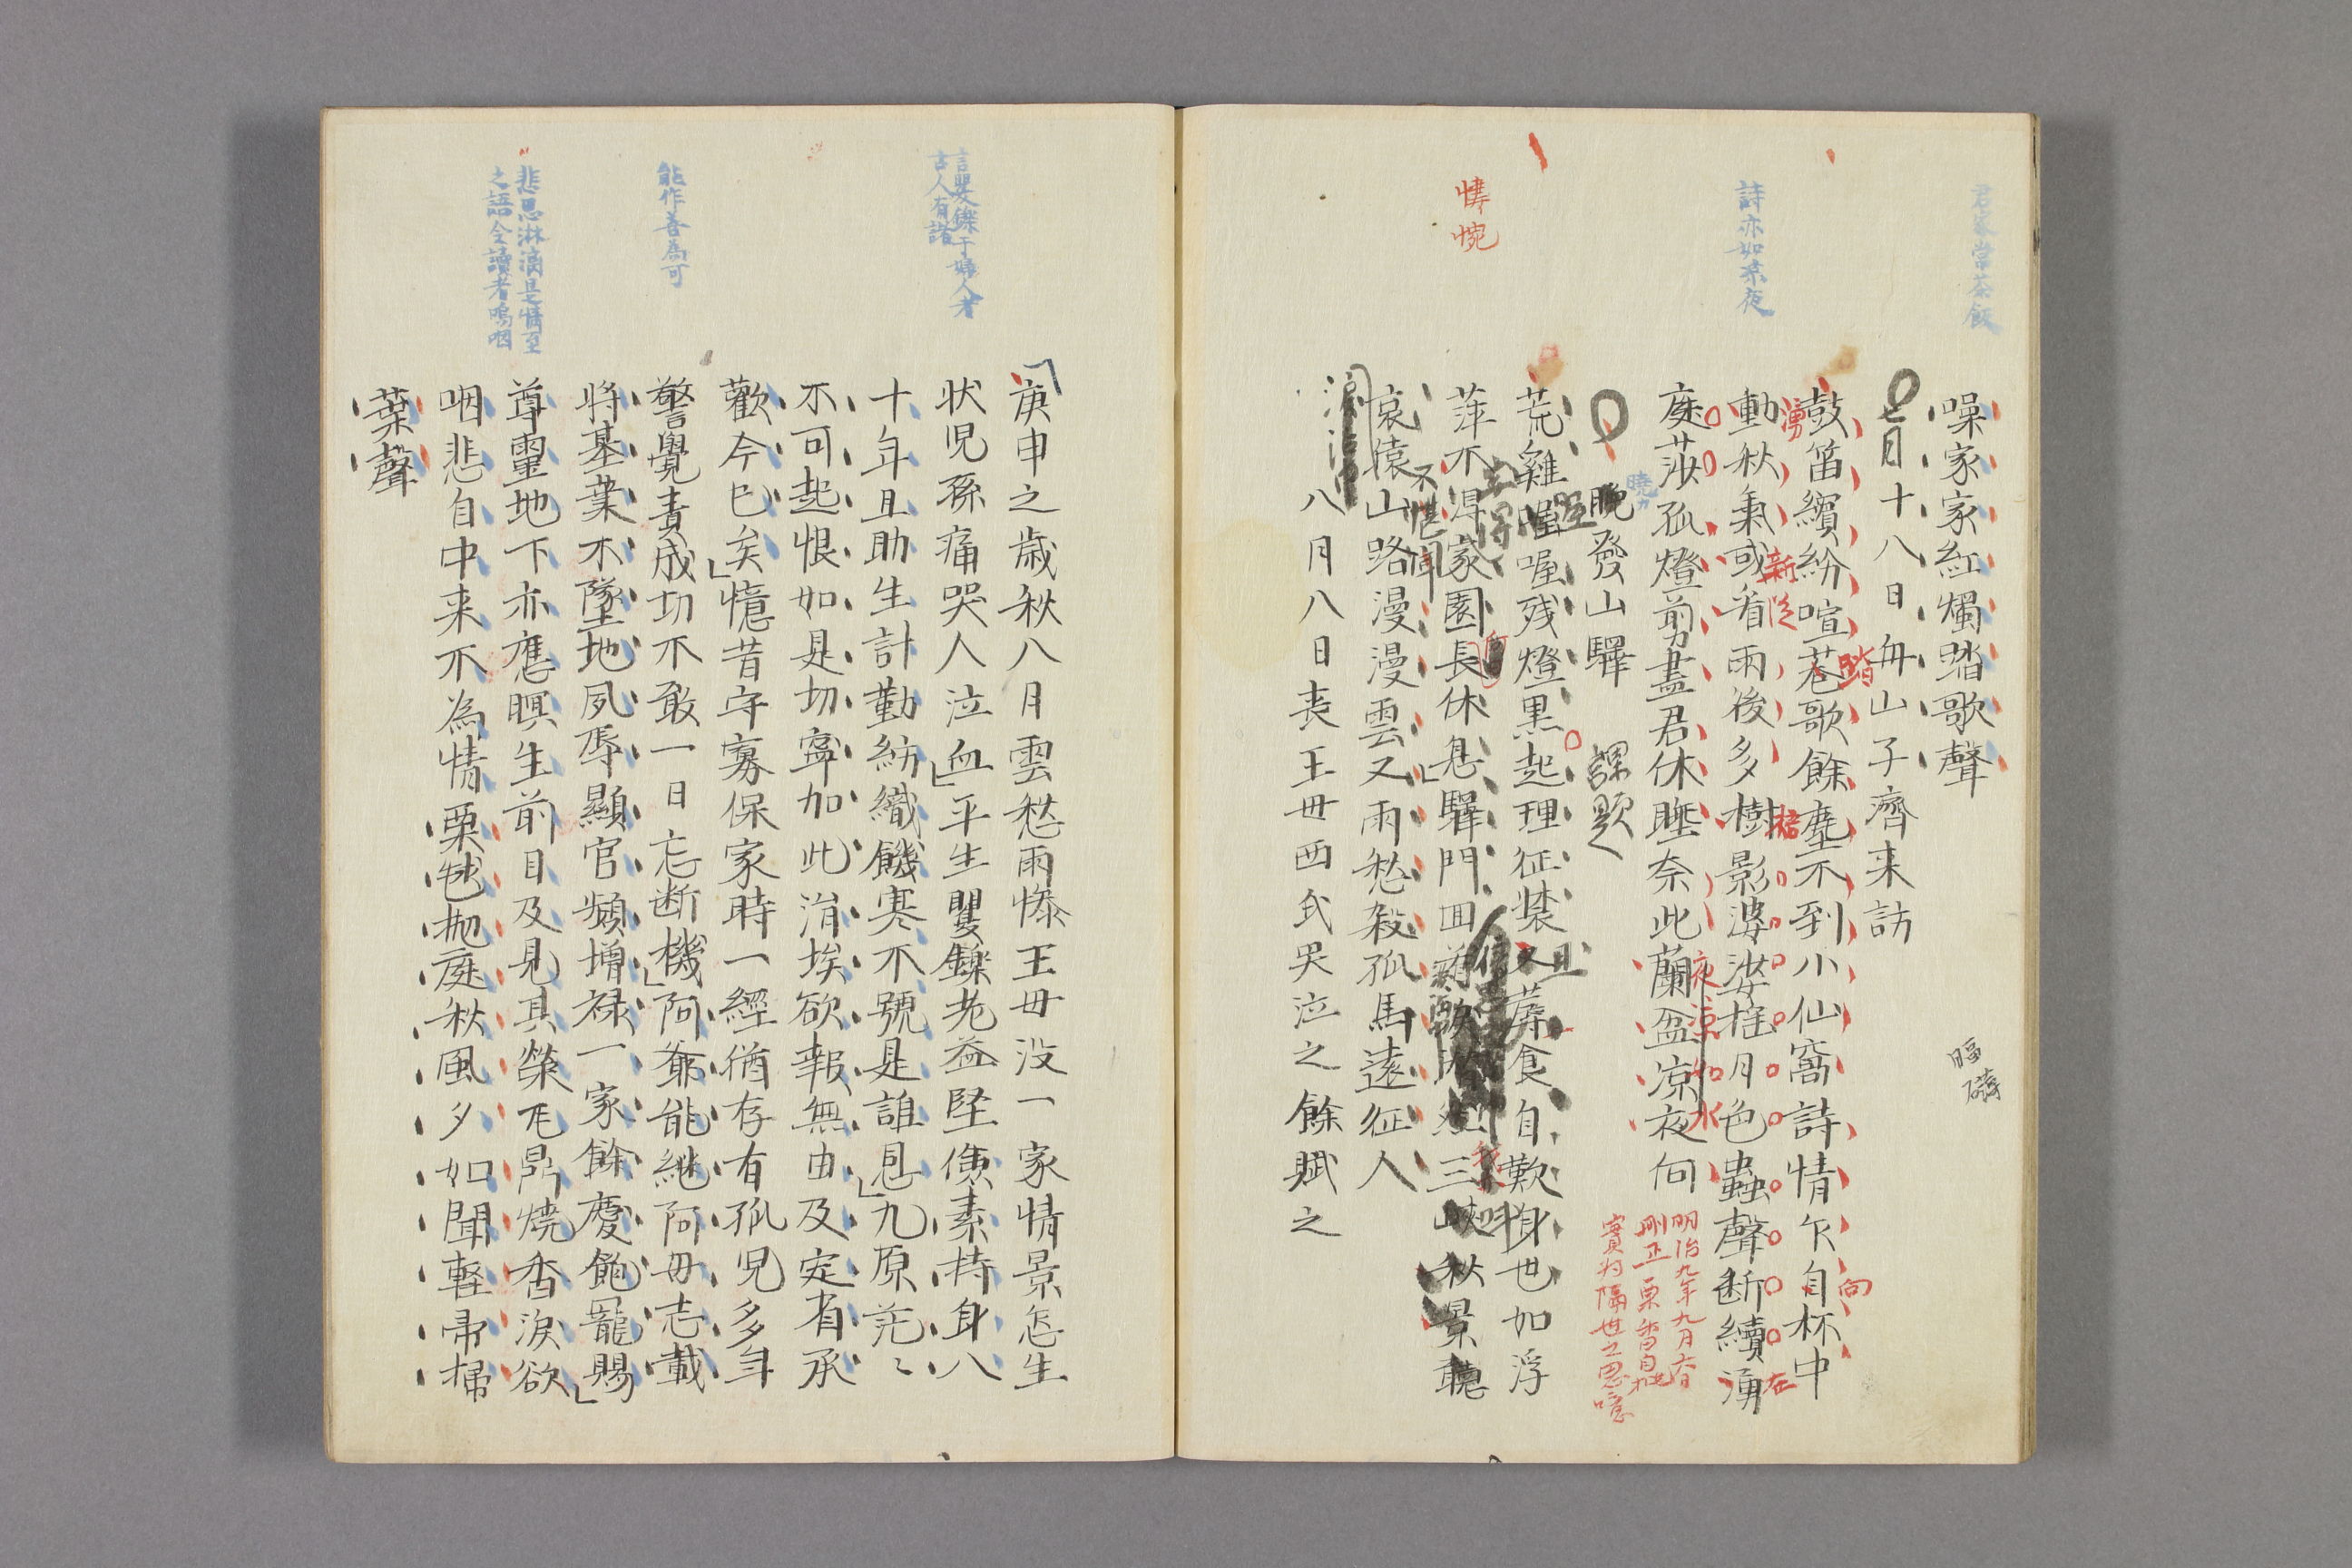 君家常茶飯
詩亦如凉夜
噪家家紅燭踏歌聲
七月十八日舟山子濟来訪
鼓笛繽紛喧巷歌餘塵不到小仙窩詩情乍自杯中
湧
踏
向
動秋氣或看雨後多樹影婆娑桂月色蟲聲断續湧
新從
在
庭莎孤燈剪盡君休睡奈此蘭盆凉夜何
夜凉如水
明治九年九月六日
刪正栗香自
實為隔世之思噫
晩發山驛 課題
曉カ
荒雞喔喔残燈黒起理征装又蓐食自歎身世如浮
且
萍不得家園長休息驛門回
三峽秋景聽
哀猿山路漫漫雲又雨愁殺孤馬遠征人
不堪聞
悽惋
八月八日喪王母西氏哭泣之餘賦之
言矍鑠于婦人者
古人有諸
能作善為可
悲思淋漓是情至
之語令讀者嗚咽
庚申之歳秋八月雲愁雨惨王母没一家情景怎生
状児孫痛哭人泣血平生矍鑠老益堅儉素持身八
十年且助生計勤紡織饑寒不號是誰恩九原茫々
不可起恨如是切寧加此涓埃欲報無由及定省承
歡今已矣憶昔守寡保家時一經猶存有孤児多年
警覺責成切不敢一日忘断機阿爺能継阿母志載
将基業不墜地夙辱顯官頻増禄一家餘慶飽寵賜
尊霊地下亦應瞑生前目及見其榮鼎焼香淚欲
咽悲自中来不為情栗毬抛庭秋風夕如聞軽帚掃
葉聲